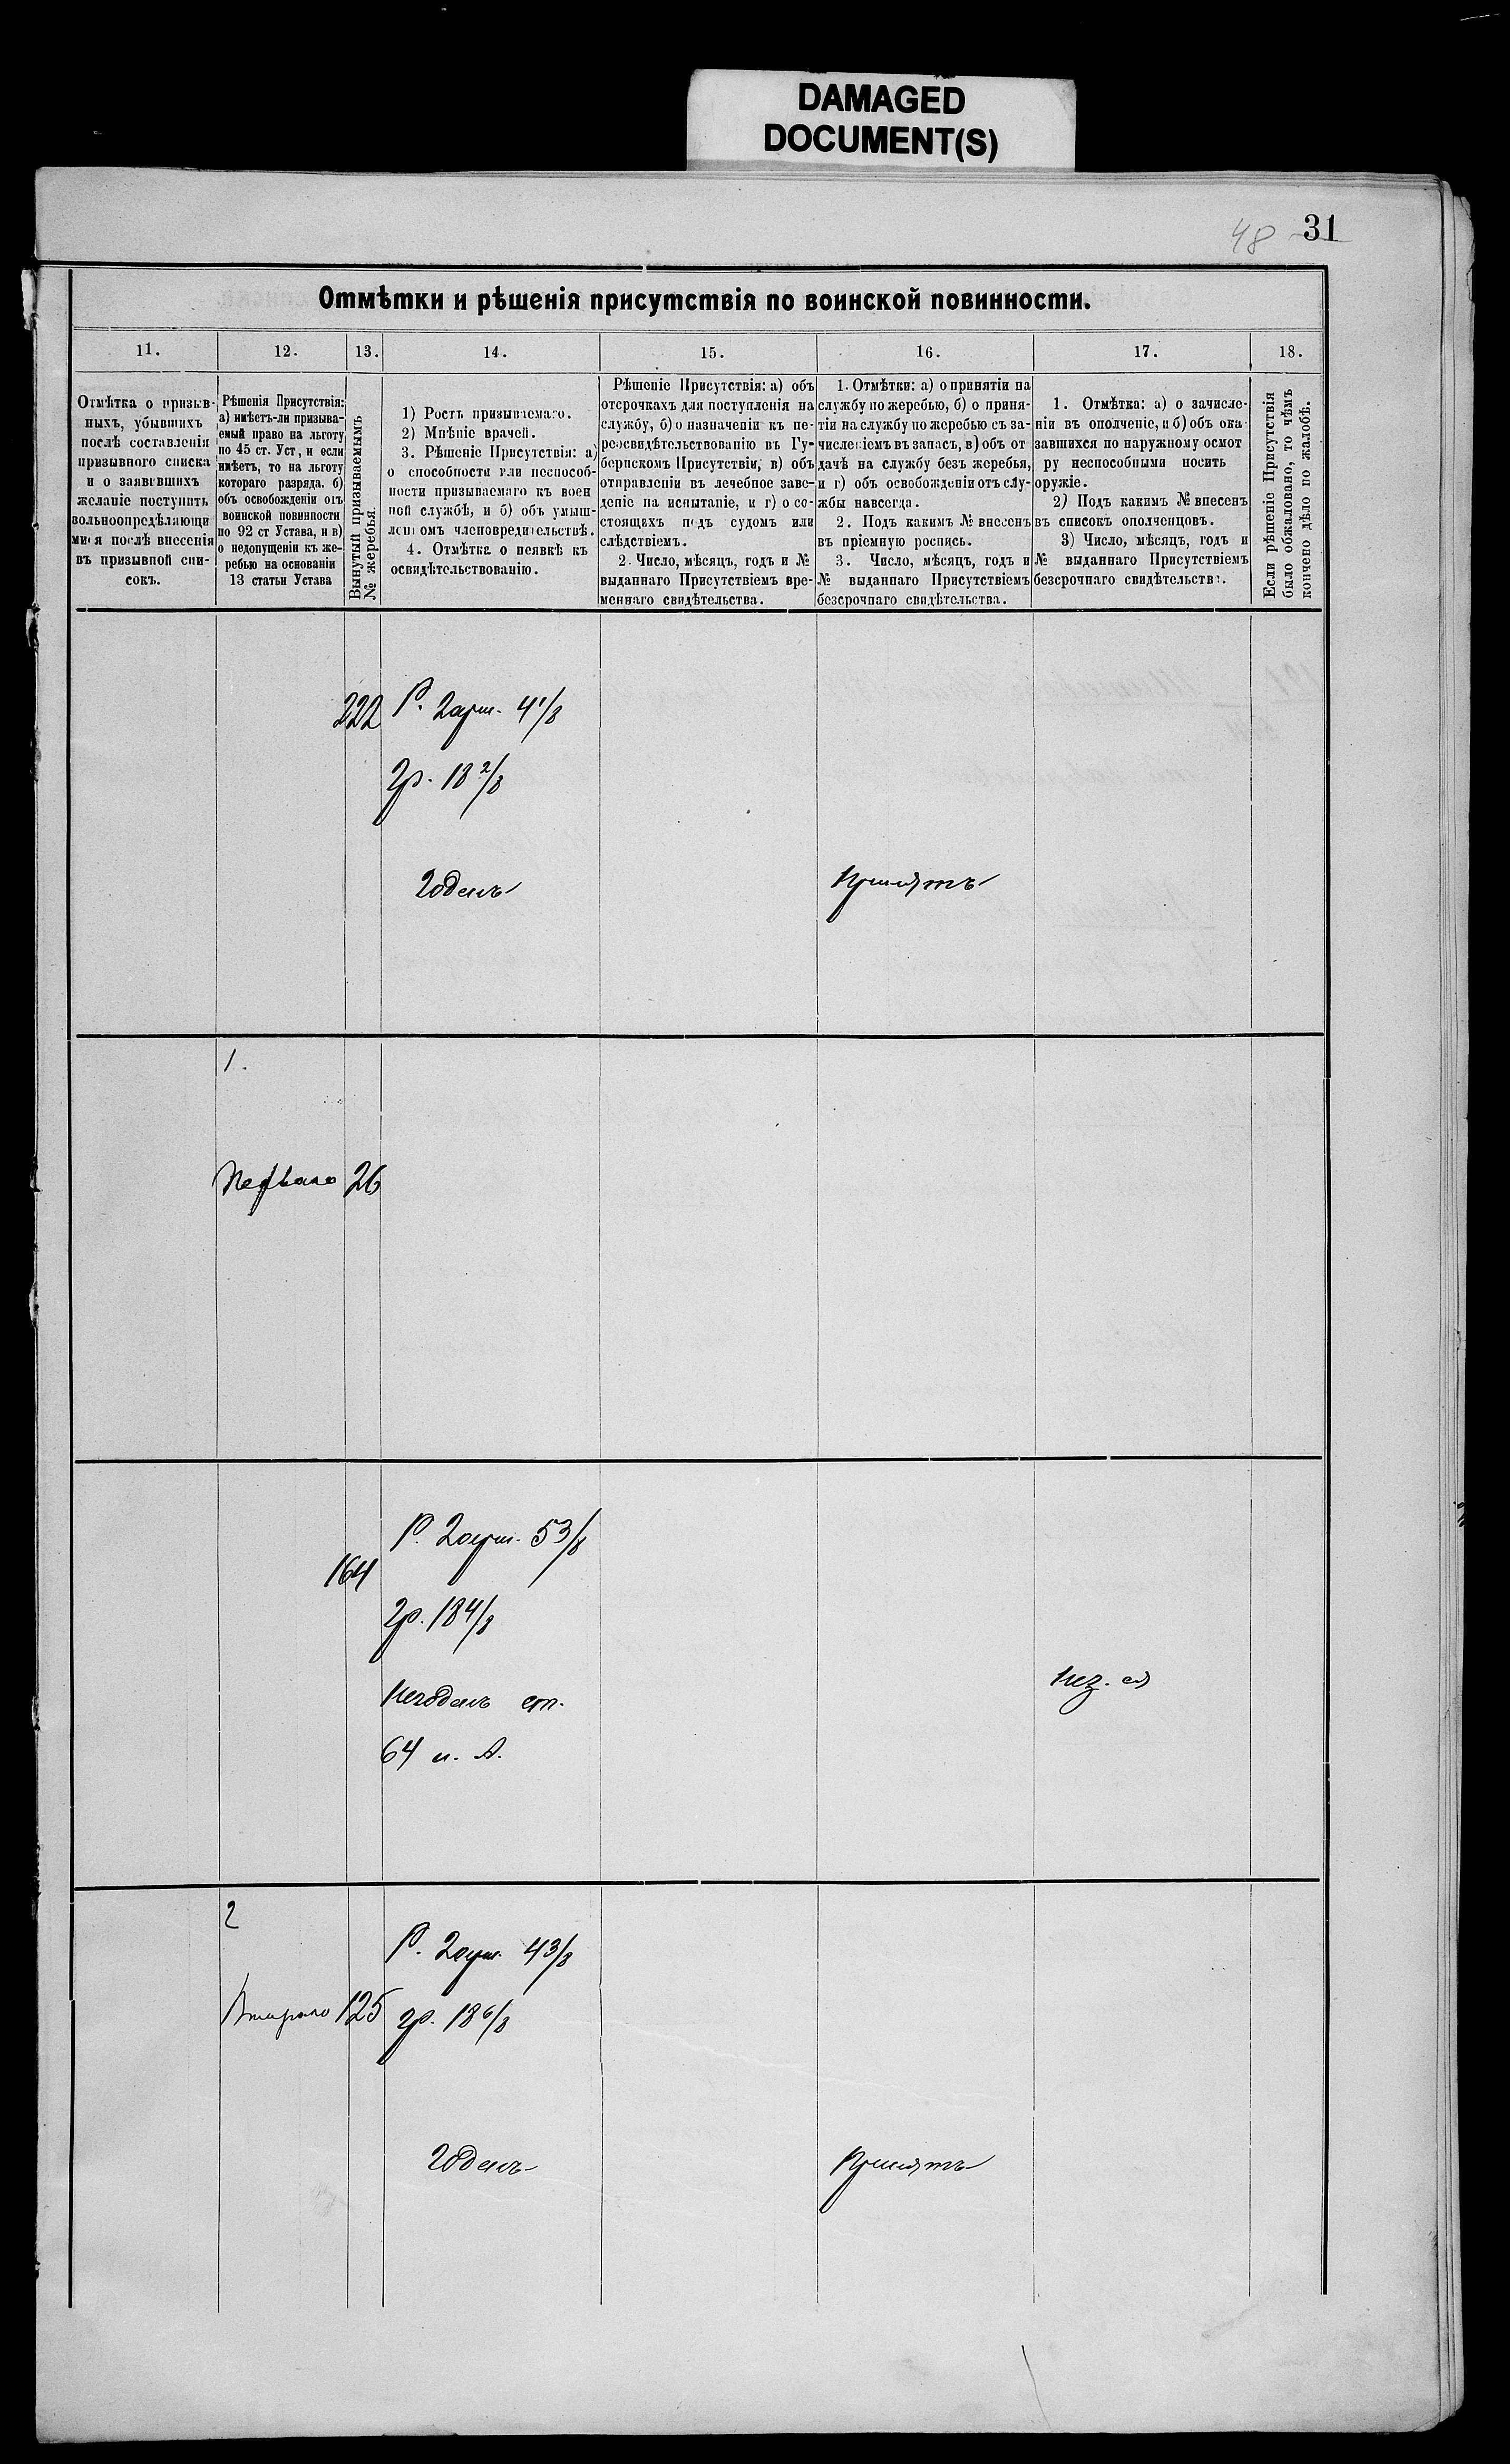 DAMAGED
DOCUMENT(S)
48 31
Отмѣтки и рѣшенія присутствія по воинской повинности.
11. 12. 13. 14. 15. 16. 17. 18.
Отмѣтка о призыв-
ныхъ, убывшихъ
послѣ составленія
призывного списка
и о заявившихъ
желаніе поступить
вольноопредѣляющи
мися послѣ внесенія
въ призывной спи-
сокъ.
Рѣшенія Присутствія:
а) имѣетъ-ли призыва-
емый право на льготу
по 45 ст. Уст, и если
имѣетъ, то на льготу
котораго разряда, б)
объ освобожденіи отъ
воинской повинности
по 92 ст Устава, и в)
о недопущеніи къ же-
ребью на основаніи
13 статьи Устава
Вынутый призываемымъ
№ жеребья.
1) Ростъ призываемаго.
2) Мнѣніе врачей.
3. Рѣшеніе Присутствія: а)
о способности или неспособ-
ности призываемаго къ воен
ной службѣ, и б) объ умыш-
леномъ членовредительствѣ.
4. Отмѣтка о неявкѣ къ
освидѣтельствованію.
Рѣшеніе Присутствія: а) объ
отсрочкахъ для поступленія на
службу, б) о назначеніи къ пе-
реосвидѣтельствованію въ Гу-
бернскомъ Присутствіи, в) объ
отправленіи въ лечебное заве-
деніе на испытаніе, и г) о со-
стоящихъ подъ судомъ или
слѣдствіемъ.
2. Число, мѣсяцъ, годъ и №
выданнаго Присутствіемъ вре-
меннаго свидѣтельства.
1. Отмѣтки: а) о принятіи на
службу по жеребью, б) о приня-
тіи на службу по жеребью съ за-
численіемъ въ запасъ, в) объ от
дачѣ на службу безъ жеребья,
и г) объ освобожденіи отъ слу-
жбы навсегда.
2. Подъ какимъ № внесенъ
въ пріемную роспись.
3. Число, мѣсяцъ, годъ и
№ выданнаго Присутствіемъ
безсрочнаго свидѣтельства.
1. Отмѣтка: а) о зачисле-
ніи въ ополченіе, и б) объ ока
завшихся по наружному осмот
ру неспособными носить
оружіе.
2) Подъ какимъ № внесенъ
въ списокъ ополченцовъ.
3) Число, мѣсяцъ, годъ и
№ выданнаго Присутствіемъ
безсрочнаго свидѣтельства.
Если рѣшеніе Присутствія
было обжаловано, то чѣмъ
кончено дѣло по жалобѣ.
222 Р. 2 арш. 4 1/8
гр. 18 2/8
Годенъ Принятъ
1.
Перваго 26
164 Р. 2 арш. 5 3/8
гр. 18 4/8
Негоденъ ст.
64 л. А.
2
Втораго 125 Р. 2 арш. 4 3/8
гр. 18 6/8
Годенъ Принятъ